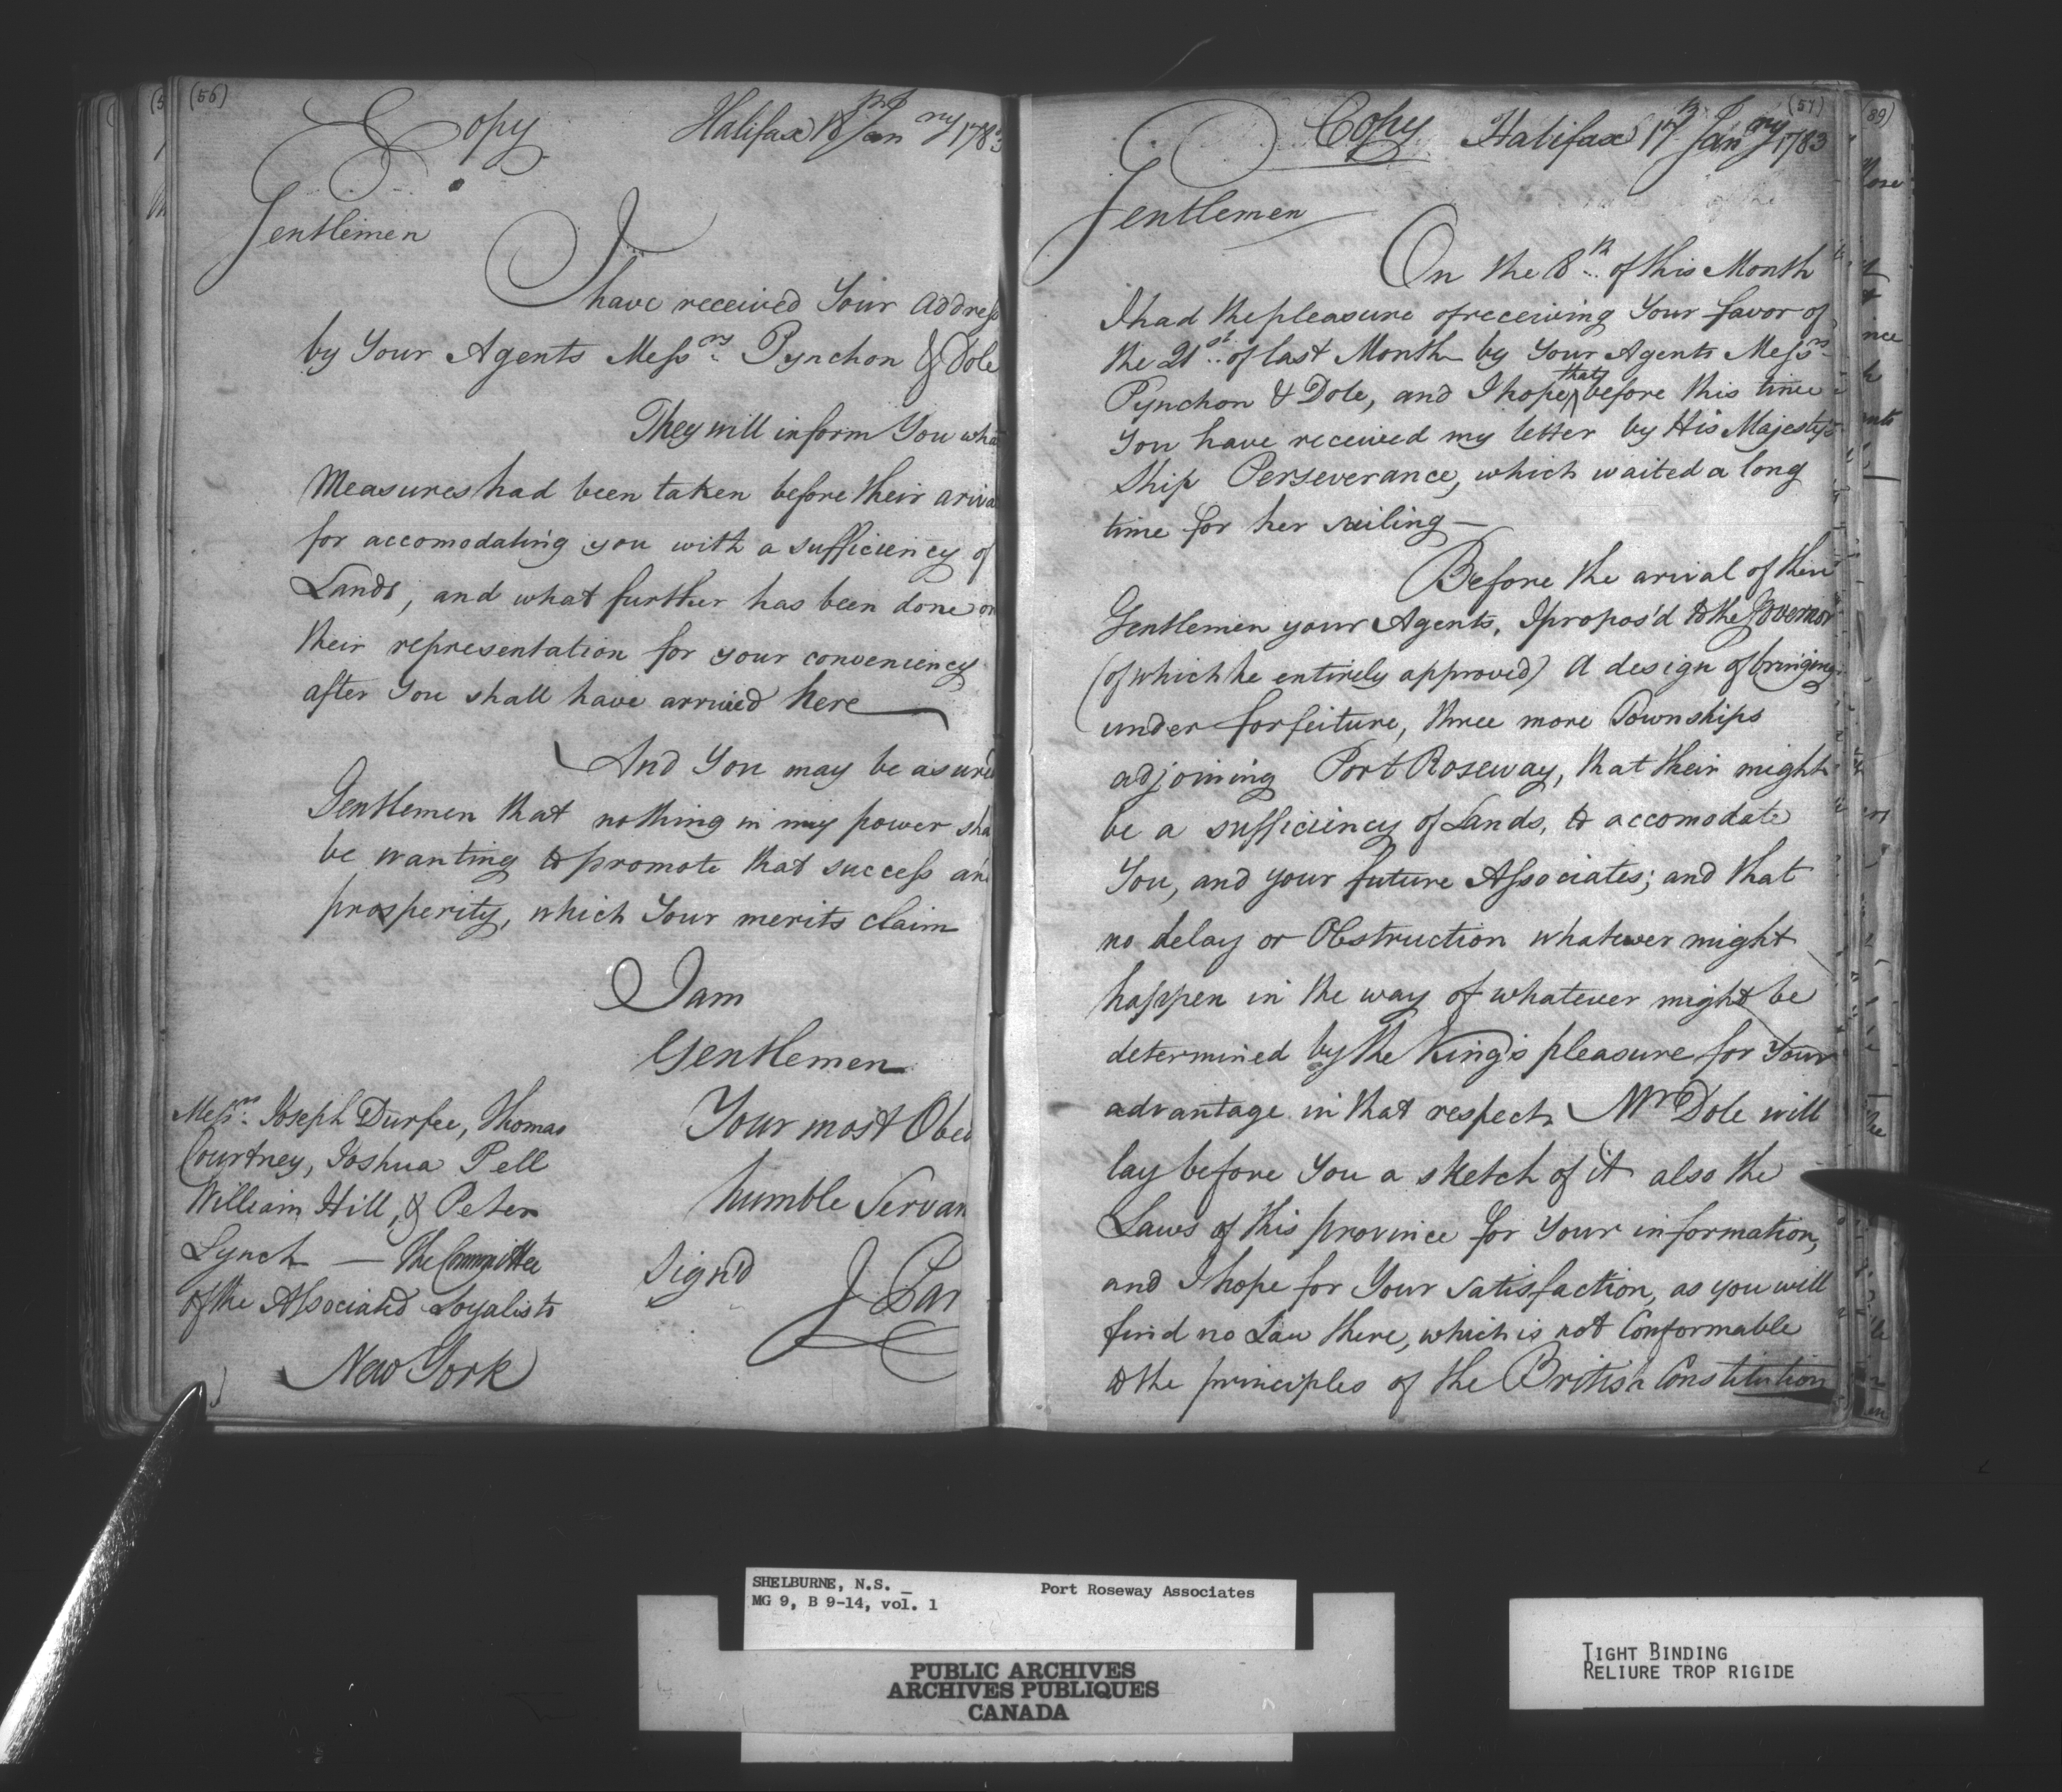 (56)
Copy Halifax 18 Janry 1783
Gentlemen
I have received Your address
by Your Agents Messrs Pynchon & Dole
They will inform You wha
Measures had been taken before their ariva
for accomodating you with a sufficiency of
Lands, and what further has been done on
their representation for your conveniency
after You shall have arrived here
And You may be asured
Gentlemen that nothing in my power sha
be wanting to promote that success and
prosperity, which Your merits claim
I am
Gentlemen
Your most Obed
humble Servan
Sign'd J Par
Messrs Joseph Durfee, Thomas
Courtney, Joshua Pell
William Hill, & Peter
Lynch — the Committee
of the Associated Loyalists
New York
(57)
Copy Halifax 17th Janry 1783
Gentlemen
On the 8th of this Month
I had the pleasure of receiving Your favor of
the 21st of last Month by Your Agents Messrs
Pynchon & Dole, and I hope that before this time
You have received my letter by His Majesty's
Ship Perseverance, which waited a long
time for her sailing —
Before the arival of their
Gentlemen your Agents, I propos'd to the Governor
(of which he entirely approved) A design of bringing
under forfeiture, three more Townships
adjoining Port Roseway, that their might
be a sufficiency of Lands, to accomodate
You, and your future Associates; and that
no delay or Obstruction whatever might
happen in the way of whatever might be
determined by the King's pleasure for Your
advantage in that respect Mr Dole will
lay before You a sketch of it also the
Laws of this province for Your information,
and I hope for Your satisfaction, as you will
find no Law there, which is not Conformable
to the principles of the British Constitution
(89)
SHELBURNE, N.S. _ Port Roseway Associates
MG 9, B 9-14, vol. 1
PUBLIC ARCHIVES
ARCHIVES PUBLIQUES
CANADA
TIGHT BINDING
RELIURE TROP RIGIDE